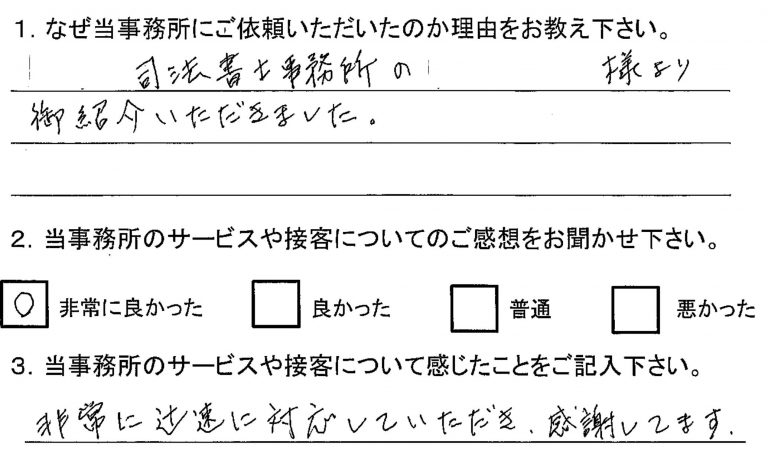 1. なぜ当事務所にご依頼いただいたのか理由をお教え下さい。
司法書士事務所の 様より
御紹介いただきました。
2. 当事務所のサービスや接客についてのご感想をお聞かせ下さい。
○ 非常に良かった 良かった 普通 悪かった
3. 当事務所のサービスや接客について感じたことをご記入下さい。
非常に迅速に対応していただき、感謝してます.